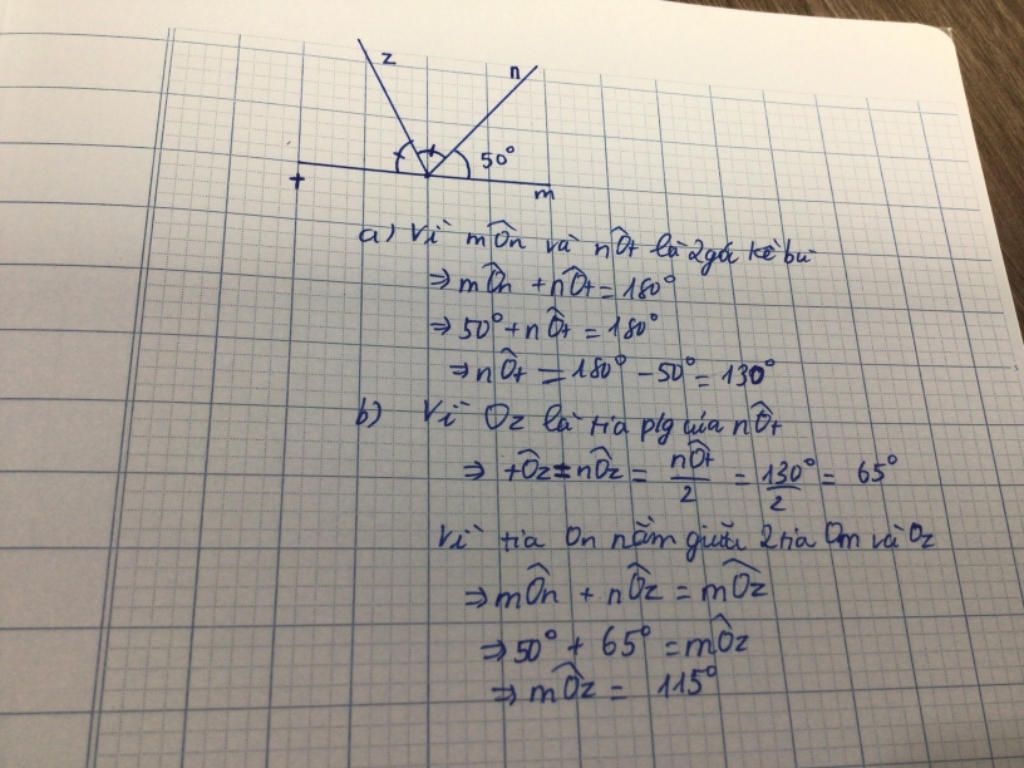 z
n
50°
t
m
a) Vì mÔn và nÔt là 2 góc kề bù
⇒ mÔn + nÔt = 180°
⇒ 50° + nÔt = 180°
⇒ nÔt = 180° - 50° = 130°
b) Vì Oz là tia p/g của nÔt
⇒ tÔz = nÔz = nÔt/2 = 130°/2 = 65°
Vì tia On nằm giữa 2 tia Om và Oz
⇒ mÔn + nÔz = mÔz
⇒ 50° + 65° = mÔz
⇒ mÔz = 115°